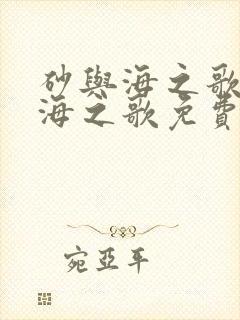 砂與海之歌
海之歌免費
宛亞平